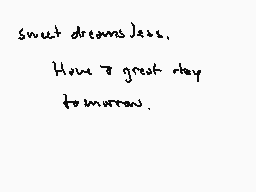 sweet dreams Jess.
Have a great day
tomorrow.